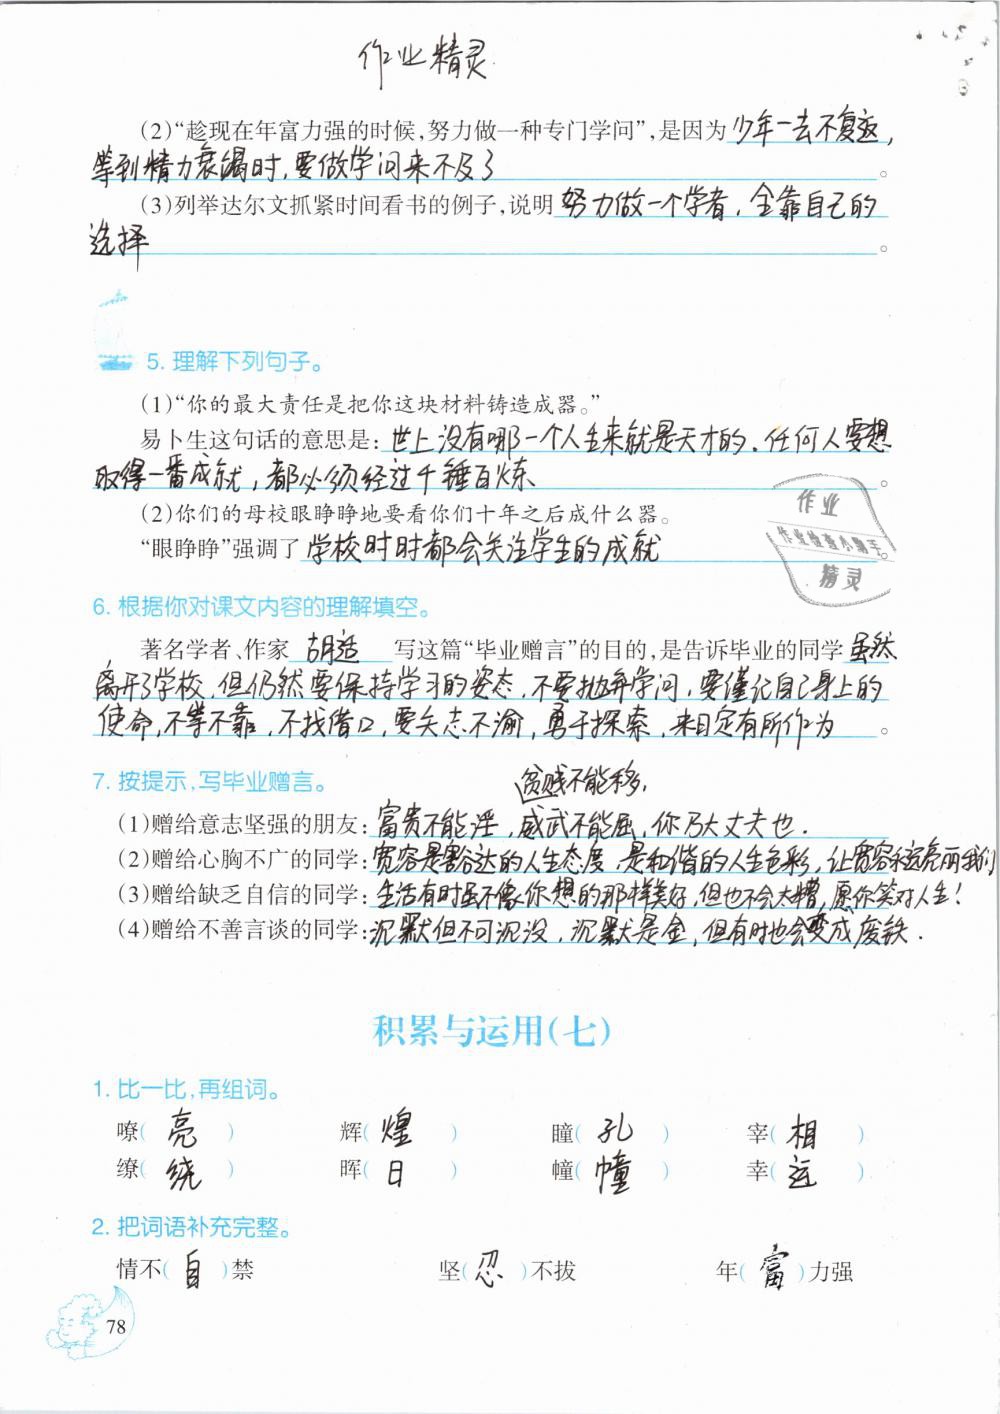 作业精灵
(2)“趁现在年富力强的时候,努力做一种专门学问”,是因为少年一去不复返,
等到精力衰竭时,要做学问来不及了。
(3)列举达尔文抓紧时间看书的例子,说明努力做一个学者,全靠自己的
选择。
5. 理解下列句子。
(1)“你的最大责任是把你这块材料铸造成器。”
易卜生这句话的意思是:世上没有哪一个人生来就是天才的.任何人要想
取得一番成就,都必须经过千锤百炼。
(2)你们的母校眼睁睁地要看你们十年之后成什么器。
“眼睁睁”强调了学校时时都会关注学生的成就。
作业
作业检查小助手
精灵
6. 根据你对课文内容的理解填空。
著名学者、作家胡适写这篇“毕业赠言”的目的,是告诉毕业的同学虽然
离开了学校,但仍然要保持学习的姿态,不要抛弃学问,要谨记自己身上的
使命,不等不靠,不找借口,要矢志不渝,勇于探索,来日定有所作为。
7. 按提示,写毕业赠言。
贫贱不能移,
(1)赠给意志坚强的朋友:富贵不能淫,威武不能屈,你乃大丈夫也.
(2)赠给心胸不广的同学:宽容是豁达的人生态度,是和谐的人生色彩,让宽容永远亮丽我们
(3)赠给缺乏自信的同学:生活有时虽不像你想的那样美好,但也不会太糟,愿你笑对人生!
(4)赠给不善言谈的同学:沉默但不可沉没,沉默是金,但有时也会变成废铁.
积累与运用(七)
1. 比一比,再组词。
嘹(亮) 辉(煌) 瞳(孔) 宰(相)
缭(绕) 晖(日) 幢(幢) 幸(运)
2. 把词语补充完整。
情不(自)禁 坚(忍)不拔 年(富)力强
78